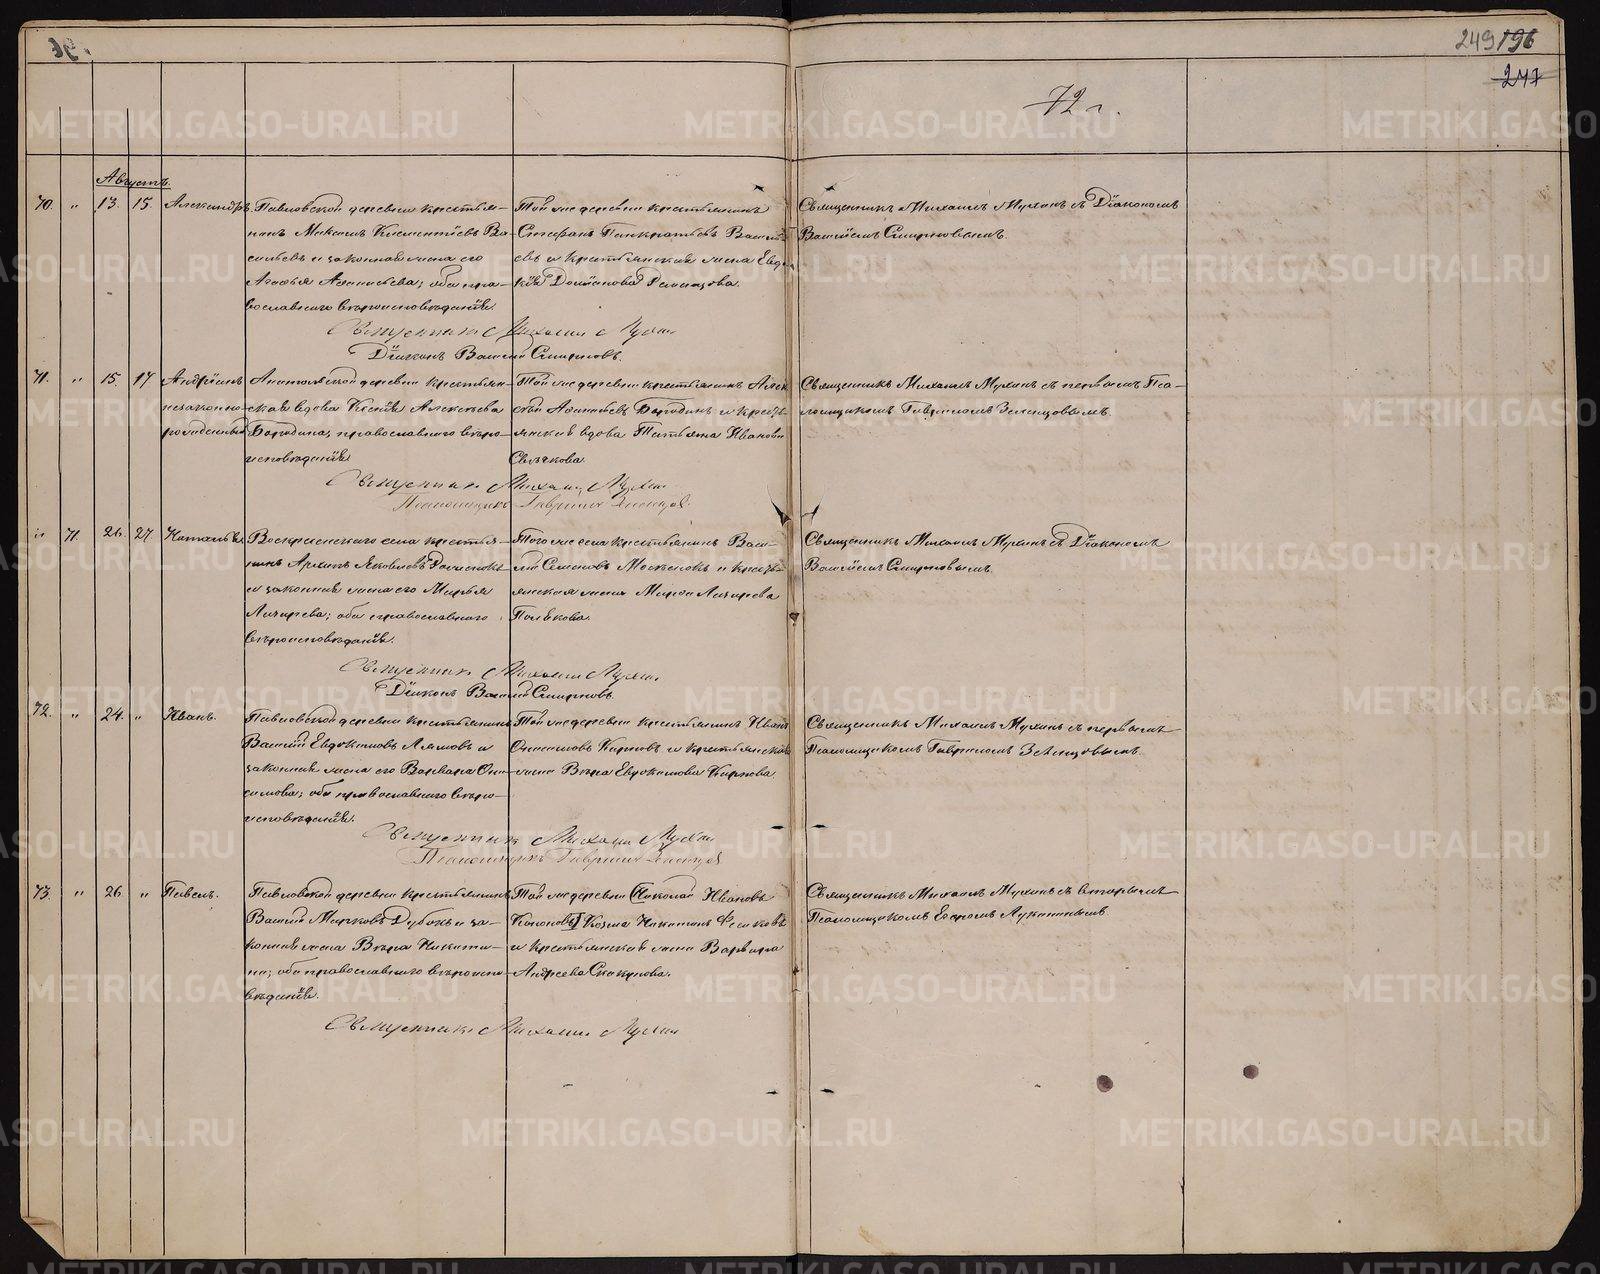 249 196
247
72 г.
Августъ.
70. " 13. 15. Александръ
Павловской деревни крестья-
нинъ Максимъ Климентіевъ Ва-
сильевъ и законная жена его
Агафья Афанасьева; оба пра-
вославнаго вѣроисповѣданія.
Той же деревни крестьянинъ
Стефанъ Панкратьевъ
и крестьянская жена
Священникъ Михаилъ Мухинъ съ Діакономъ
Василіемъ Смирновымъ.
Священникъ Михаилъ Мухинъ
Діаконъ Василій Смирновъ.
71. " 15. 17 Андріанъ
незаконно-
рожденный
деревни крестьян-
ская вдова Ксенія Алексѣева
Бородина, православнаго вѣро-
исповѣданія
Той же деревни крестьянинъ
Бородинъ и кресть-
янская вдова Татьяна Иванова
Священникъ Михаилъ Мухинъ съ первымъ Пса-
ломщикомъ Гавріиломъ Зеленцовымъ.
Священникъ Михаилъ Мухинъ
Псаломщикъ Гавріилъ Зеленцовъ.
" 71. 26. 27.
Воскресенскаго села крестья-
нинъ Архипъ Яковлевъ
и законная жена его Марья
Лазарева; оба православнаго
вѣроисповѣданія.
Того же села крестьянинъ Васи-
лій Семеновъ и кресть-
янская жена Лазарева
Полякова.
Священникъ Михаилъ Мухинъ съ Діакономъ
Василіемъ Смирновымъ.
Священникъ Михаилъ Мухинъ
Діаконъ Василій Смирновъ.
72. " 24. " Иванъ.
Павловской деревни крестьянинъ
Василій Евдокимовъ и
законная жена его Варвара Они-
симова; оба православнаго вѣро-
исповѣданія.
Той же деревни крестьянинъ Иванъ
Онисимовъ Карповъ и крестьянская
жена Вѣра Евдокимова Карпова.
Священникъ Михаилъ Мухинъ съ первымъ
Псаломщикомъ Гавріиломъ Зеленцовымъ.
Священникъ Михаилъ Мухинъ
Псаломщикъ Гавріилъ Зеленцовъ
73. " 26. " Павелъ.
Павловской деревни крестьянинъ
Василій Марковъ и за-
конная жена Вѣра Никити-
на; оба православнаго вѣроиспо-
вѣданія.
Той же деревни Николай Ивановъ
Козма Никитинъ
и крестьянская жена Варвара
Андреева Скакунова.
Священникъ Михаилъ Мухинъ съ вторымъ
Псаломщикомъ
Священникъ Михаилъ Мухинъ
METRIKI.GASO-URAL.RU